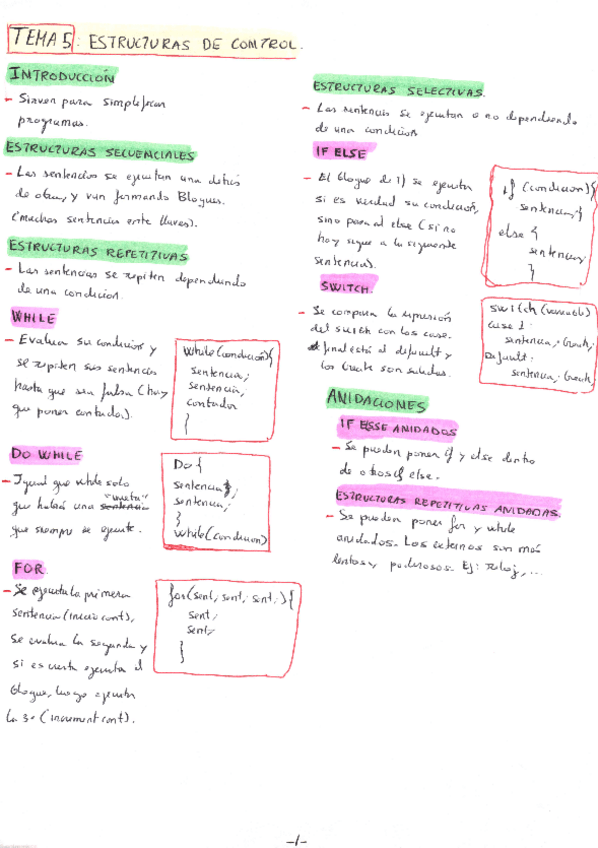 TEMA 5: ESTRUCTURAS DE CONTROL.
INTRODUCCIÓN
- Sirven para simplificar
programas.
ESTRUCTURAS SECUENCIALES
- Las sentencias se ejecutan una detrás
de otra, y van formando Bloques.
(muchas sentencias entre llaves).
ESTRUCTURAS REPETITIVAS
- Las sentencias se repiten dependiendo
de una condición.
WHILE
- Evalúan su condición y
se repiten sus sentencias
hasta que sea falsa (hay
que poner contador).
while(condición){
sentencia;
sentencia;
contador
}
DO WHILE
- Igual que while solo
que habrá una "vuelta"
que siempre se ejecute.
Do {
sentencia;
sentencia;
}
while(condicion)
FOR
- Se ejecuta la primera
sentencia (inicio cont),
se evalua la segunda y
si es cierta ejecuta el
bloque, luego ejecuta
la 3ª (increment cont).
for(sent; sent; sent;){
sent;
sent;
}
ESTRUCTURAS SELECTIVAS.
- Las sentencias se ejecutan o no dependiendo
de una condición
IF ELSE
- El bloque de if se ejecuta
si es verdad su condición,
sino pasa al else (si no
hay sigue a la siguiente
sentencia).
if (condicion){
sentencia;}
else {
sentencia;
}
SWITCH.
- Se compara la expresión
del switch con los case.
Al final está el default y
los break son salidas.
switch (variable)
case 1:
sentencia; break;
Default:
sentencia; break;
ANIDACIONES
IF ELSE ANIDADOS
- Se pueden poner if y else dentro
de otros if else.
ESTRUCTURAS REPETITIVAS ANIDADAS.
- Se pueden poner for y while
anidados. Los externos son más
lentos y poderosos. Ej: reloj, ...
-1-